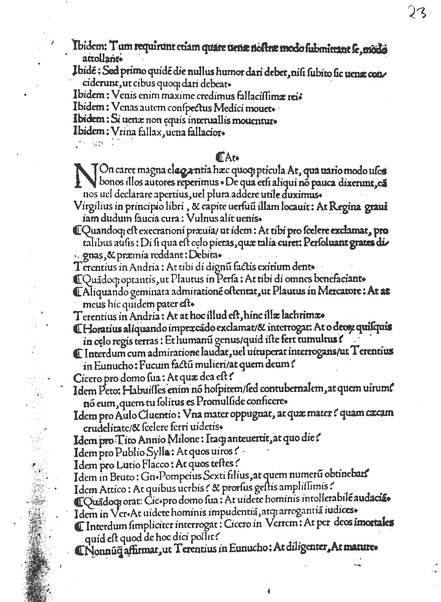 23
Ibidem: Tum requirunt etiam quare uenæ nostræ modo submittant se, modo
attollant.
Ibidē: Sed primo quidē die nullus humor dari debet, nisi subito sic uenæ con
ciderunt, ut cibus quoq; dari debeat.
Ibidem: Venis enim maxime credimus fallacissimæ rei.
Ibidem: Venas autem conspectus Medici mouet.
Ibidem: Si uenæ non equis interuallis mouentur.
Ibidem: Vrina fallax, uena fallacior.
¶At.
NOn caret magna elegantia hæc quoq; pticula At, qua uario modo uses
bonos illos autores reperimus. De qua etsi aliqui nō pauca dixerint, eā
nos uel declarare apertius, uel plura addere utile duximus.
Virgilius in principio libri, & capite uersuū illam locauit: At Regina graui
iam dudum faucia cura: Vulnus alit uenis.
¶Quandoq; est execrationi præuia/ ut idem: At tibi pro scelere exclamat, pro
talibus ausis: Di si qua est cęlo pietas, quæ talia curet: Persoluant grates di
gnas, & præmia reddant: Debita.
Terentius in Andria: At tibi di dignū factis exitium dent.
¶Quādoq; optantis, ut Plautus in Persa: At tibi di omnes benefaciant.
¶Aliquando geminata admirationē ostentat, ut Plautus in Mercatore: At at
meus hic quidem pater est.
Terentius in Andria: At at hoc illud est, hinc illæ lachrimæ.
¶Horatius aliquando impræcādo exclamat/& interrogat: At o deoꝝ quisquis
in cęlo regis terras: Et humanū genus/quid iste fert tumultus?
¶Interdum cum admiratione laudat, uel uituperat interrogans/ut Terentius
in Eunucho: Fucum factū mulieri/at quem deum?
Cicero pro domo sua: At quæ dea est?
Idem Pęto: Habuisses enim nō hospitem/sed contubernalem, at quem uirum?
nō eum, quem tu solitus es Promulside conficere.
Idem pro Aulo Cluentio: Vna mater oppugnat, at quæ mater? quam cæcam
crudelitate/& scelere ferri uidetis.
Idem pro Tito Annio Milone: Itaq; anteuertit, at quo die?
Idem pro Publio Sylla: At quos uiros?
Idem pro Lutio Flacco: At quos testes?
Idem in Bruto: Gn. Pompeius Sexti filius, at quem numerū obtinebat?
Idem Attico: At quibus uerbis? & prorsus gestis amplissimis?
¶Quādoq; orat: Cic. pro domo sua: At uidete hominis intollerabilē audaciā.
Idem in Ver. At uidete hominis impudentiā, atq; arrogantiā iudices.
¶Interdum simpliciter interrogat: Cicero in Verrem: At per deos imortales
quid est quod de hoc dici possit?
¶Nonnūq; affirmat, ut Terentius in Eunucho: At diligenter, At mature.